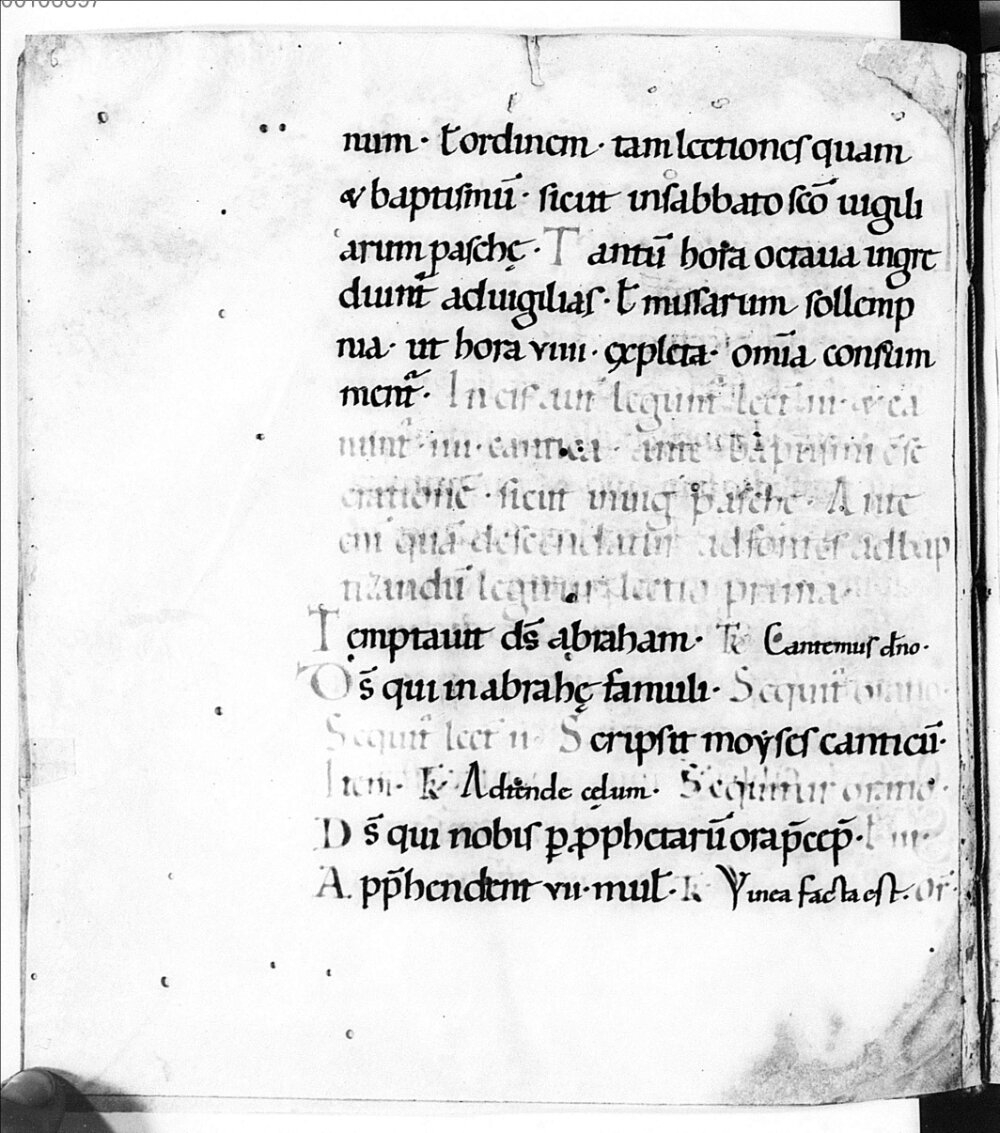 num · t̄ ordinem · tam lectiones quam
& baptismū · sicut in sabbato sc̄o uigili
arum paschę · Tantū hora octaua ingre
diunt̄ ad uigilias · t̄ missarum sollemp
nia · ut hora viiii · ęxpleta · omīa consum
ment̄ · In eis aut̄ legunt̄ lect̄ iii · & ca
nunt̄ · iiii · cantica · ante baptismi
sicut in uig pasche · Ante
quā descendatur ad fontes ad bap
tizandū legitur lectio prima ·
Tęmptauit ds̄ abraham · R Cantemus dn̄o ·
Ds̄ qui in abrahę famuli · Sequit̄ oratio ·
Sequit̄ lect ii · Scripsit moẏses canticū ·
Item · R Adtende cęlum · Sequitur oratio ·
Ds̄ qui nobis p̱ p̱phetarū ora p̄cep̄ · L iii ·
App̄hendent vii · mul̄ · R Vinea facta est · or̄ ·